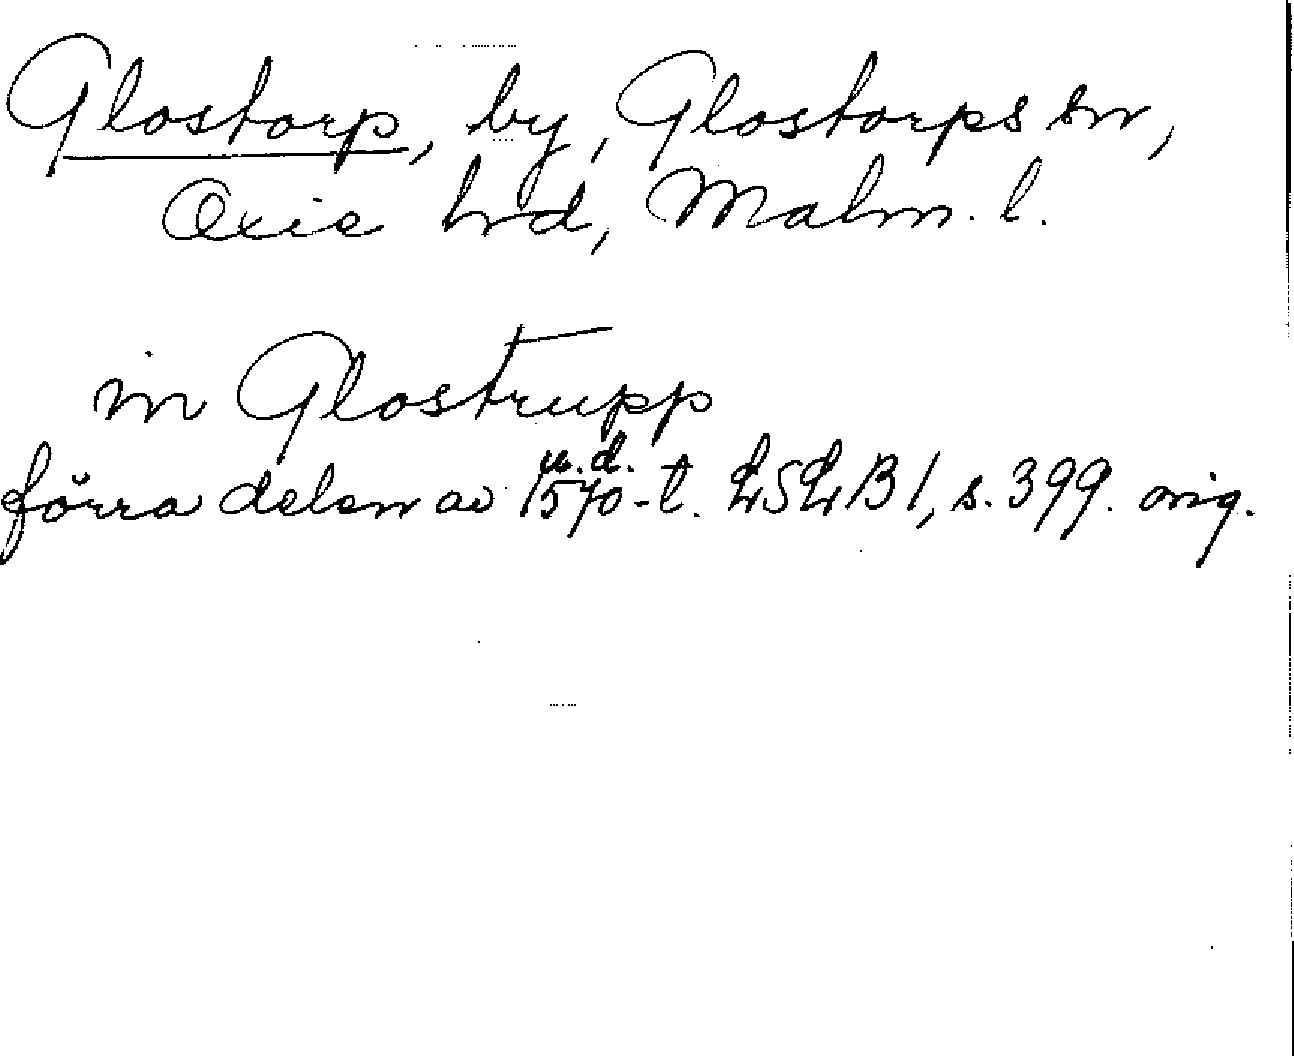 Glostorp, by, Glostorps sn,
Oxie hrd, Malm. l.
in Glostrupp
u. d.
förra delen av 1570-t. LSLB 1, s. 399. orig.